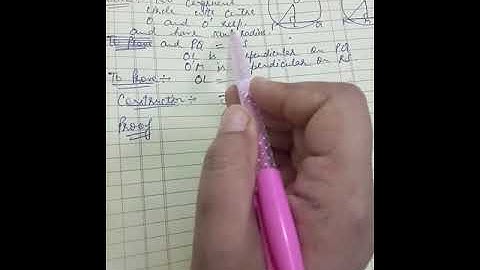 congruent
circle with centre
O and O' resp.
and have radius
To Prove and PQ =
OL is perpendicular on PQ
O'M is perpendicular on RS
To Prove :- OL =
Construction :-
Proof